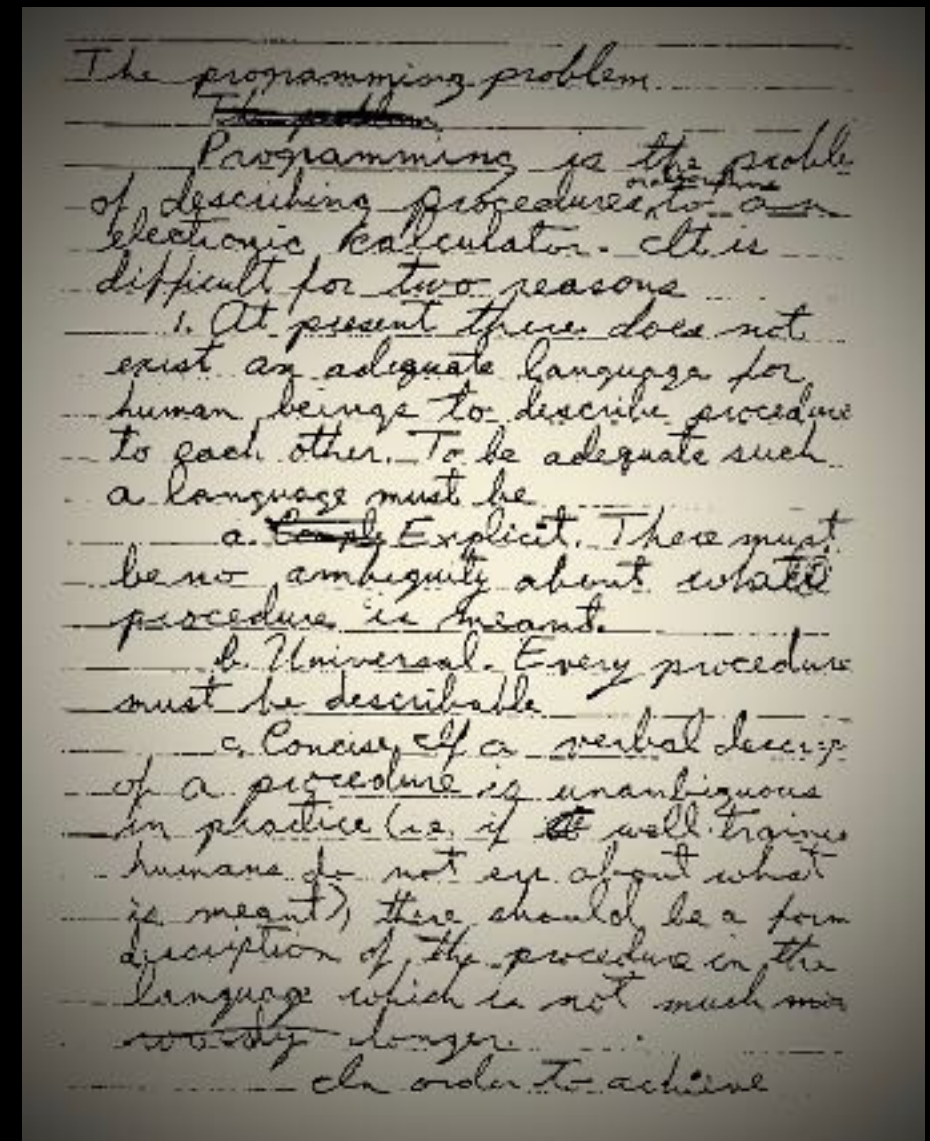 The programming problem
The problem
Programming is the proble
of describing procedures or algorithms to an
electronic kalculator. It is
difficult for two reasons
1. At present there does not
exist an adequate language for
human beings to describe procedure
to each other. To be adequate such
a language must be
a. Comple Explicit. There must
be no ambiguity about what
procedure is meant.
b. Universal. Every procedure
must be describable
c. Concise. If a verbal descrip
of a procedure is unambiguous
in practice (i.e. if well traine
humans do not err about what
is meant), there should be a form
discription of the procedure in the
language which is not much mor
wordy longer.
In order to achieve